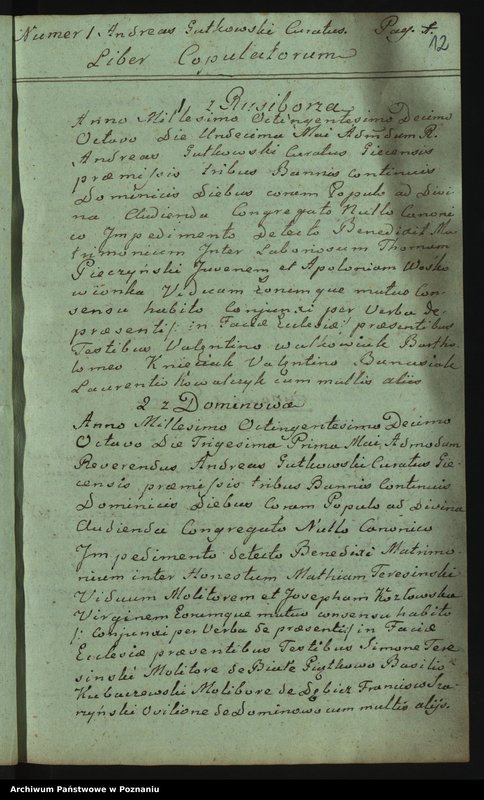 Numer 1. Andreas Gutkowski Curatus. Pag. 1.
12
Liber Copulatorum
1 z Rusiborza
Anno Millesimo Octingentesimo Decimo
Octavo Die Undecima Mai Admdum R.
Andreas Gutkowski Curatus Giecensis
præmissis tribus Bannis Continuis
Dominicis Diebus coram Populo ad Divi-
na Audienda Congregato Nullo Canoni
co Impedimento Detecto Benedixit Ma-
trimonium Inter Laboriosum Thomam
Pieczyński Juvenem et Apoloniam Wośko
wionka Viduam Eorumque mutuo Con-
sensu habito Conjunxi per Verba de
præsenti /: in Facie Eclesiæ præsentibus
Testibus Valentino Walkowiak Bartho
lomeo Knieciak Valentino Banasiak
Laurentio Kowalczyk cum multis aliis
2 z Dominowa
Anno Millesimo Octingentesimo Decimo
Octavo Die Trigesima Prima Mai Admodum
Reverendus Andreas Gutkowski Curatus Gie-
censis præmissis tribus Bannis Continuis
Dominicis Diebus Coram Populo ad Divina
Audienda Congregato Nullo Canonico
Impedimento detecto Benedixi Matrimo-
nium inter Honestum Mathiam Teresinski
Viduum Molitorem et Josepham Kozlowska
Virginem Eorumque mutuo consensu habito
/: Conjunxi per Verba de præsenti :/ in Facie
Ecclesiæ præsentibus Testibus Simone Tere
sinski Molitore de Białe Piątkowo Basilio
Kubaczewski Molitore de Dębicz Francisco
rzyński Ovilione de Dominowo cum multis alijs.
Archiwum Państwowe w Poznaniu